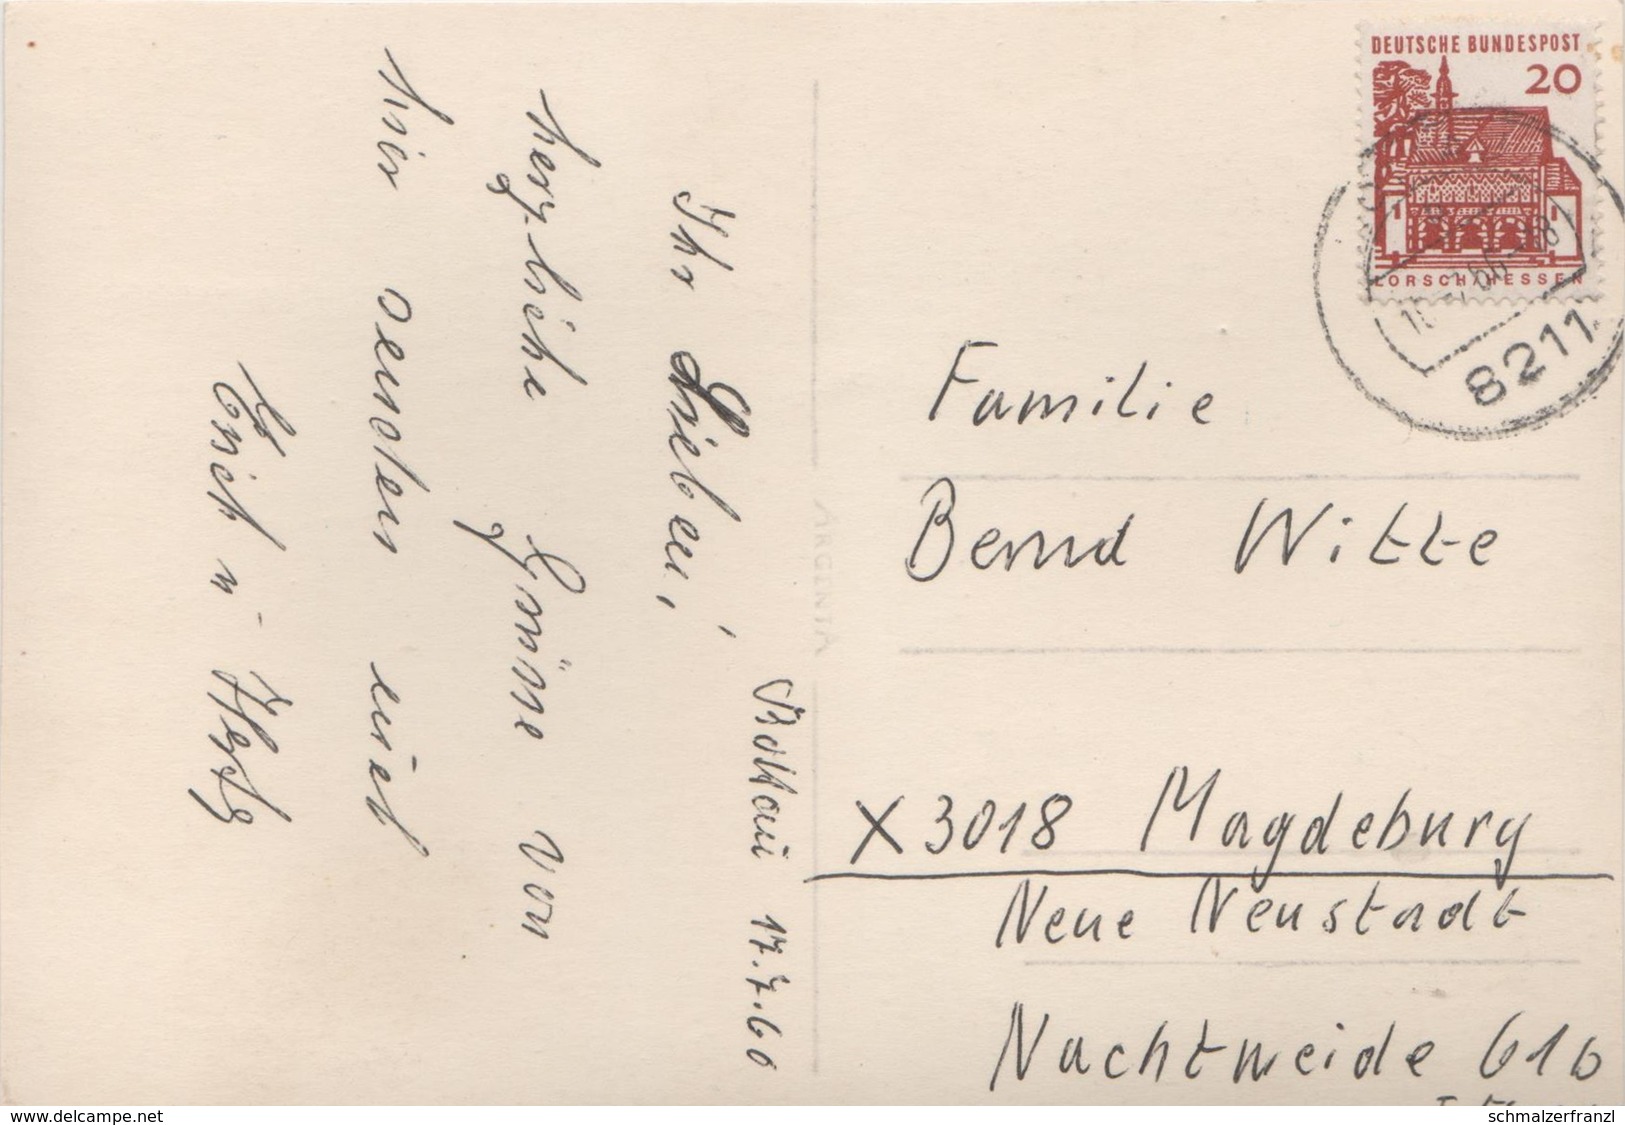 DEUTSCHE BUNDESPOST
20
LORSCH/HESSEN
8211
17.7.60
Ihr Lieben!
herzliche Grüsse von
hier senden euch
Erich u.
ARGENTA
Familie
Bernd Witte
X 3018 Magdeburg
Neue Neustadt
Nachtweide 61b
www.delcampe.net
schmalzerfranzl